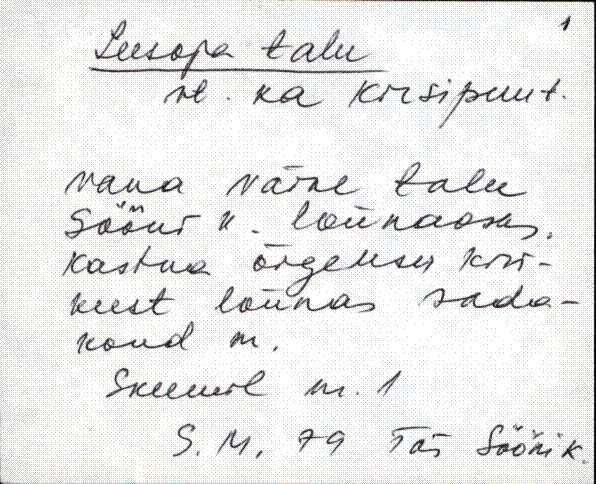 1
Leesoja talu
vt. ka kirsipuut.
vana väike talu
Sööri k. lõunaosas.
Kastna õigeusu kiri-
kust lõunas sada-
kond m.
Skeemil nr. 1
S. M. 79 Tõs Sööri k.